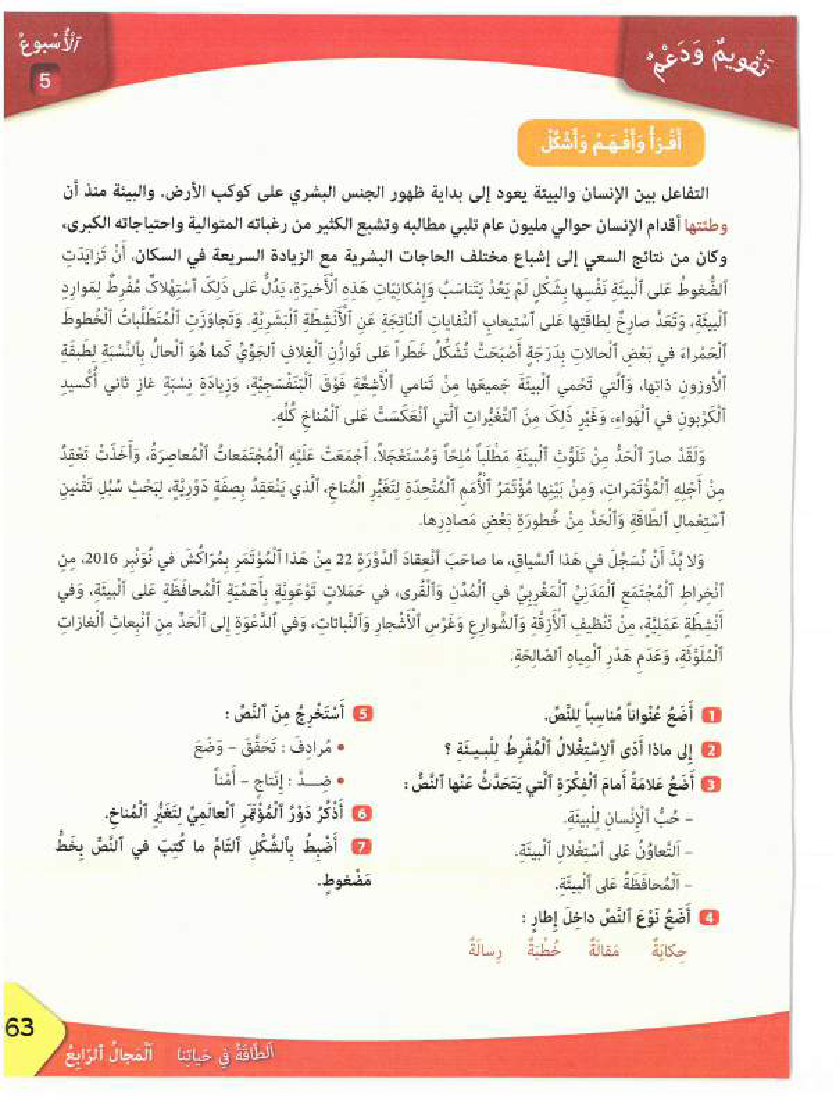 تَقْويمٌ وَدَعْمٌ
اَلْأُسْبوعُ
5
أَقْرَأُ وَأَفْهَمُ وَأَشْكُلُ
التفاعل بين الإنسان والبيئة يعود إلى بداية ظهور الجنس البشري على كوكب الأرض. والبيئة منذ أن
وطئتها أقدام الإنسان حوالي مليون عام تلبي مطالبه وتشبع الكثير من رغباته المتوالية واحتياجاته الكبرى،
وكان من نتائج السعي إلى إشباع مختلف الحاجات البشرية مع الزيادة السريعة في السكان، أَنْ تَزايَدَتِ
ٱلضُّغوطُ عَلى ٱلْبيئَةِ نَفْسِها بِشَكْلٍ لَمْ يَعُدْ يَتَناسَبُ وَإِمْكانِيّاتِ هَذِهِ ٱلْأَخيرَةِ، يَدُلُّ عَلى ذَلِكَ ٱسْتِهْلاكٌ مُفْرِطٌ لِمَوارِدِ
ٱلْبيئَةِ، وَتَعَدٍّ صارِخٌ لِطاقَتِها عَلى ٱسْتيعابِ ٱلنُّفاياتِ ٱلنّاتِجَةِ عَنِ ٱلْأَنْشِطَةِ ٱلْبَشَرِيَّةِ. وَتَجاوَزَتِ ٱلْمُتَطَلَّباتُ ٱلْخُطوطَ
ٱلْحَمْراءَ في بَعْضِ ٱلْحالاتِ بِدَرَجَةٍ أَصْبَحَتْ تُشَكِّلُ خَطَراً عَلى تَوازُنِ ٱلْغِلافِ ٱلْجَوِّيِّ كَما هُوَ ٱلْحالُ بِٱلنِّسْبَةِ لِطَبَقَةِ
ٱلْأوزونِ ذاتِها، وَٱلَّتي تَحْمي ٱلْبيئَةَ جَميعَها مِنْ تَنامي ٱلْأَشِعَّةِ فَوْقَ ٱلْبَنَفْسَجِيَّةِ، وَزِيادَةِ نِسْبَةِ غازِ ثاني أُكْسيدِ
ٱلْكَرْبونِ في ٱلْهَواءِ، وَغَيْرِ ذَلِكَ مِنَ ٱلتَّغَيُّراتِ ٱلَّتي ٱنْعَكَسَتْ عَلى ٱلْمُناخِ كُلِّهِ.
وَلَقَدْ صارَ ٱلْحَدُّ مِنْ تَلَوُّثِ ٱلْبيئَةِ مَطْلَباً مُلِحّاً وَمُسْتَعْجَلاً، أَجْمَعَتْ عَلَيْهِ ٱلْمُجْتَمَعاتُ ٱلْمُعاصِرَةُ، وَأَخَذَتْ تَعْقِدُ
مِنْ أَجْلِهِ ٱلْمُؤْتَمَراتِ، وَمِنْ بَيْنِها مُؤْتَمَرُ ٱلْأُمَمِ ٱلْمُتَّحِدَةِ لِتَغَيُّرِ ٱلْمُناخِ، ٱلَّذي يَنْعَقِدُ بِصِفَةٍ دَوْرِيَّةٍ، لِبَحْثِ سُبُلِ تَقْنينِ
ٱسْتِعْمالِ ٱلطّاقَةِ وَٱلْحَدِّ مِنْ خُطورَةِ بَعْضِ مَصادِرِها.
وَلا بُدَّ أَنْ نُسَجِّلَ في هَذا ٱلسِّياقِ، ما صاحَبَ ٱنْعِقادَ ٱلدَّوْرَةِ 22 مِنْ هَذا ٱلْمُؤْتَمَرِ بِمُرّاكُشَ في نُوَنْبِرَ 2016، مِنِ
ٱنْخِراطِ ٱلْمُجْتَمَعِ ٱلْمَدَنِيِّ ٱلْمَغْرِبِيِّ في ٱلْمُدُنِ وَٱلْقُرى، في حَمَلاتٍ تَوْعَوِيَّةٍ بِأَهَمِّيَّةِ ٱلْمُحافَظَةِ عَلى ٱلْبيئَةِ، وَفي
أَنْشِطَةٍ عَمَلِيَّةٍ، مِنْ تَنْظيفِ ٱلْأَزِقَّةِ وَٱلشَّوارِعِ وَغَرْسِ ٱلْأَشْجارِ وَٱلنَّباتاتِ، وَفي ٱلدَّعْوَةِ إِلى ٱلْحَدِّ مِنِ ٱنْبِعاثِ ٱلْغازاتِ
ٱلْمُلَوِّثَةِ، وَعَدَمِ هَدْرِ ٱلْمِياهِ ٱلصّالِحَةِ.
1 أَضَعُ عُنْواناً مُناسِباً لِلنَّصِّ.
2 إِلى ماذا أَدّى ٱلِاسْتِغْلالُ ٱلْمُفْرِطُ لِلْبيئَةِ ؟
3 أَضَعُ عَلامَةً أَمامَ ٱلْفِكْرَةِ ٱلَّتي يَتَحَدَّثُ عَنْها ٱلنَّصُّ :
- حُبُّ ٱلْإِنْسانِ لِلْبيئَةِ.
- ٱلتَّعاوُنُ عَلى ٱسْتِغْلالِ ٱلْبيئَةِ.
- ٱلْمُحافَظَةُ عَلى ٱلْبيئَةِ.
4 أَضَعُ نَوْعَ ٱلنَّصِّ داخِلَ إِطارٍ :
حِكايَةٌ مَقالَةٌ خُطْبَةٌ رِسالَةٌ
5 أَسْتَخْرِجُ مِنَ ٱلنَّصِّ :
• مُرادِفَ : تَحَقَّقَ - وَضَعَ
• ضِــدَّ : إِنْتاجٍ - أَمْناً
6 أَذْكُرُ دَوْرَ ٱلْمُؤْتَمَرِ ٱلْعالَمِيِّ لِتَغَيُّرِ ٱلْمُناخِ.
7 أَضْبِطُ بِٱلشَّكْلِ ٱلتّامِّ ما كُتِبَ في ٱلنَّصِّ بِخَطٍّ
مَضْغوطٍ.
63
اَلْمَجالُ ٱلرّابِعُ
اَلطّاقَةُ في حَياتِنا